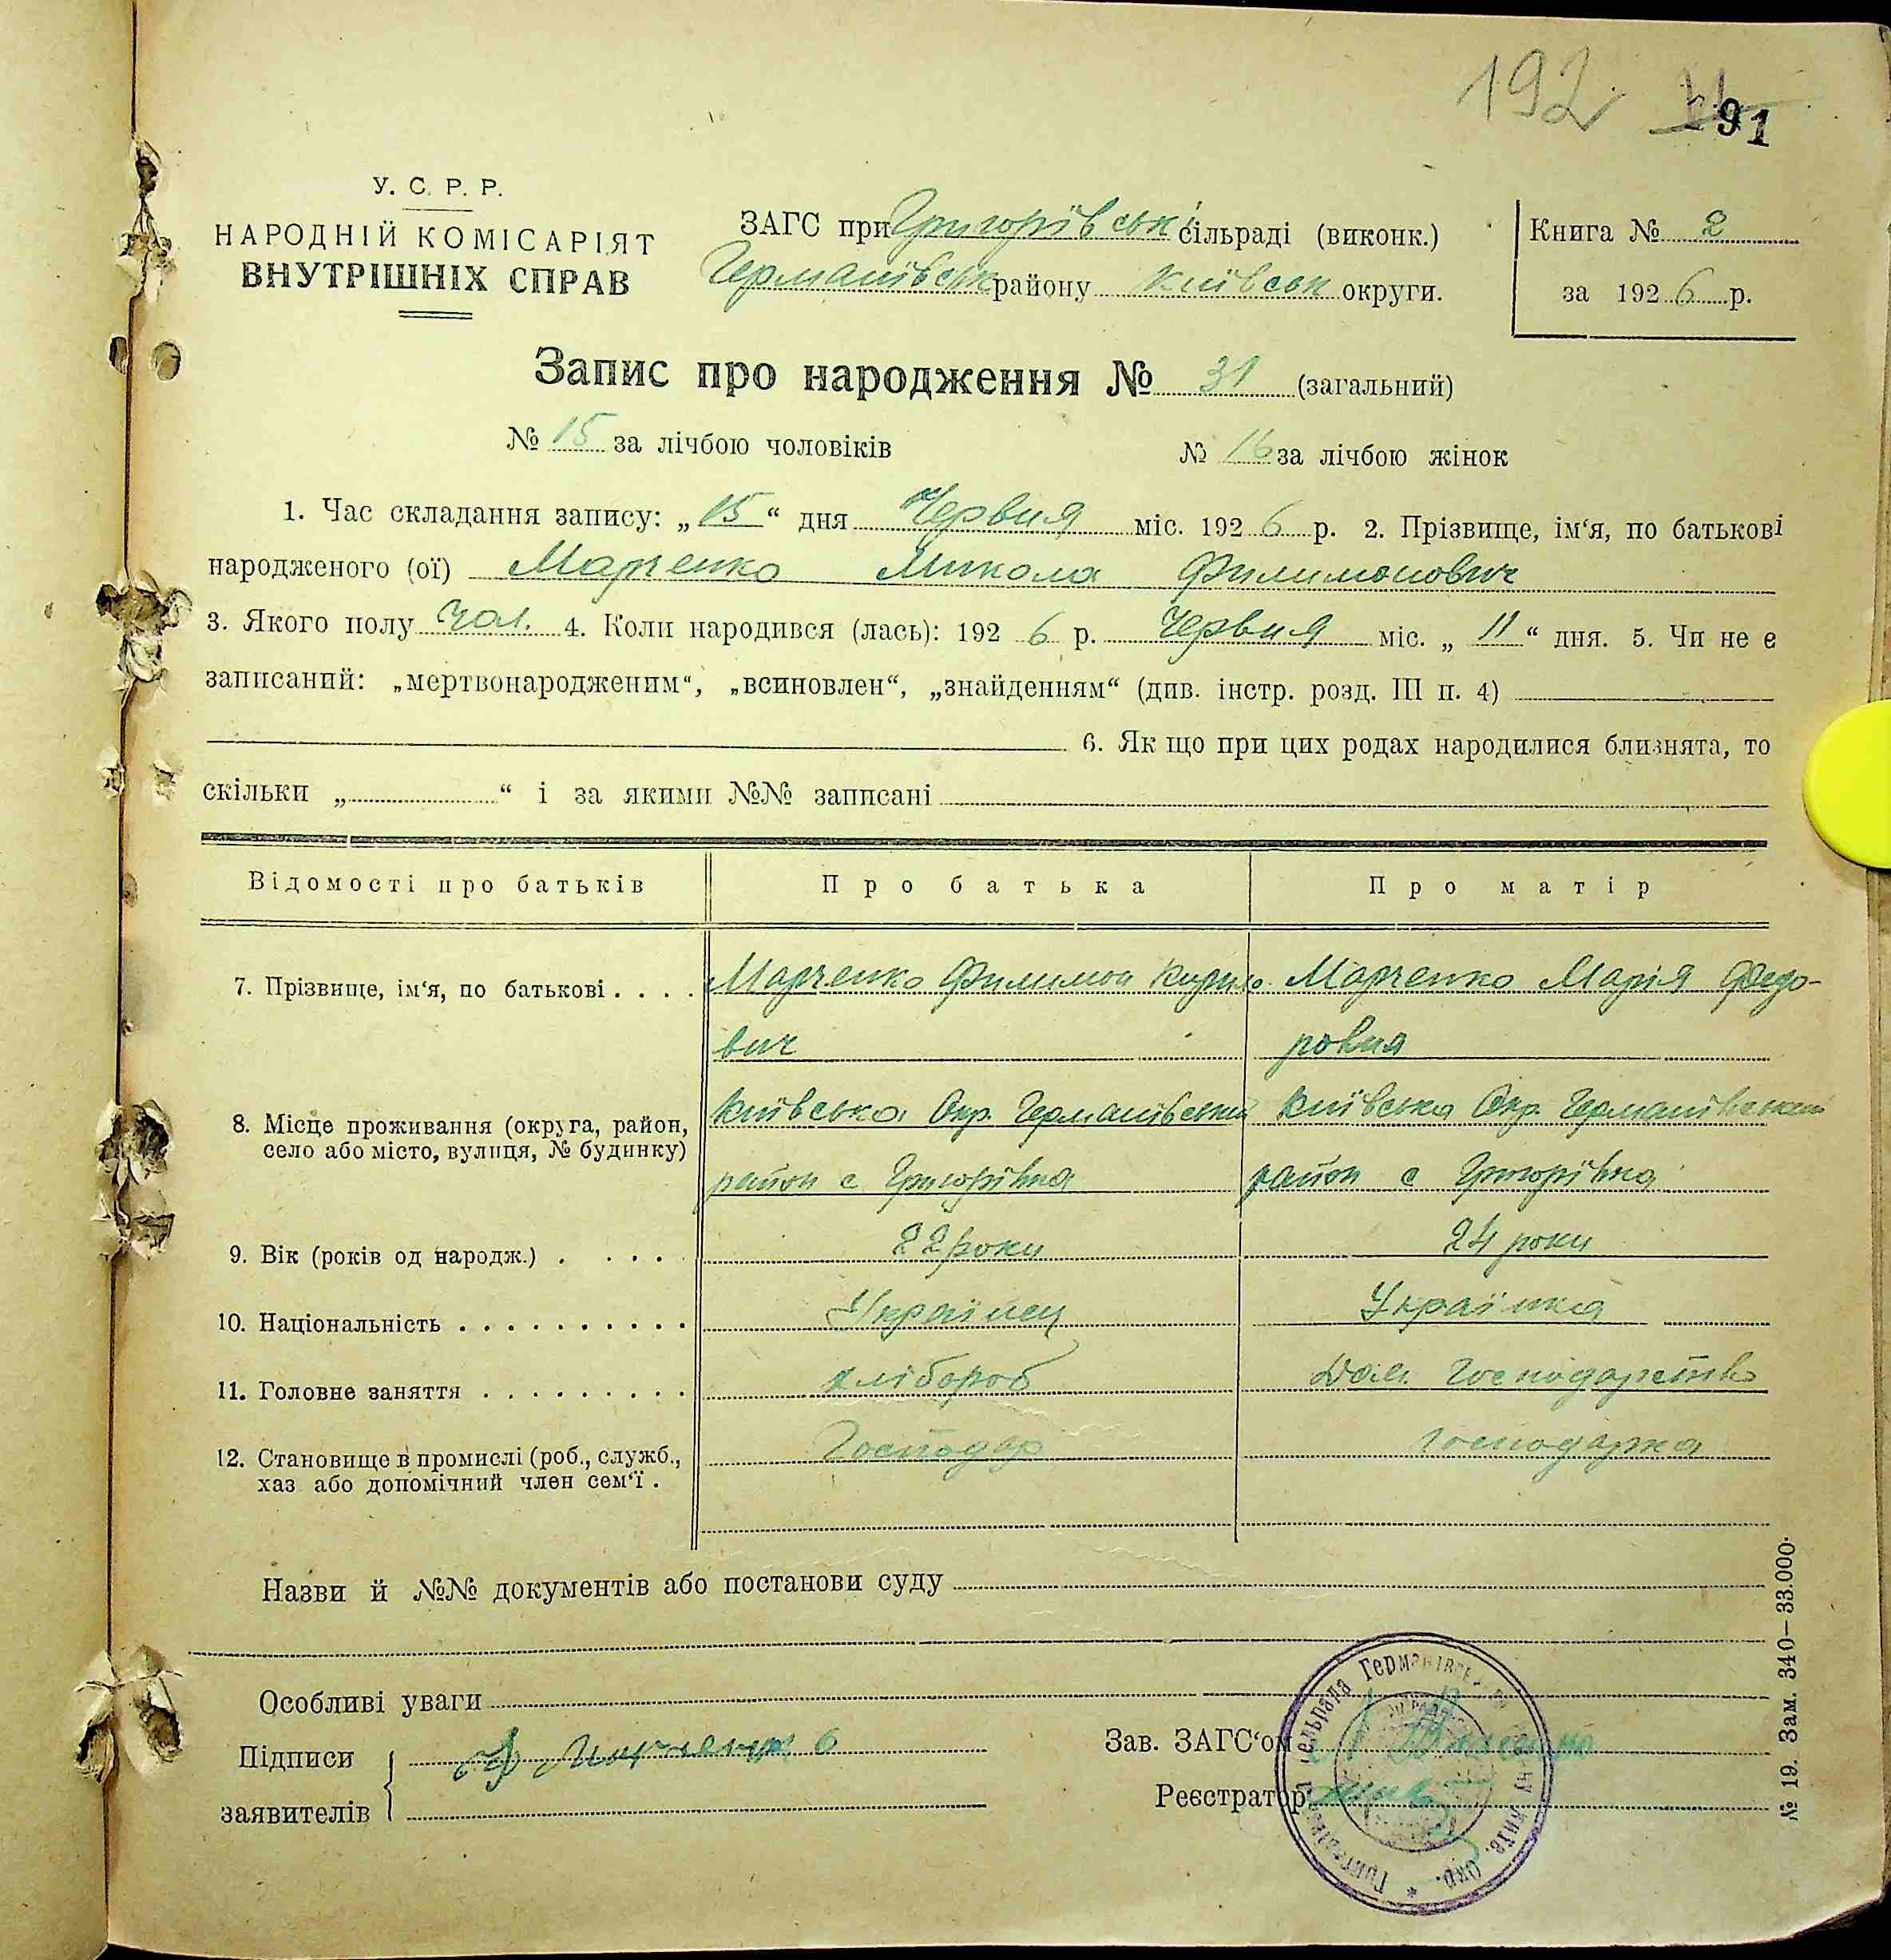 192
91
У. С. Р. Р.
НАРОДНІЙ КОМІСАРІЯТ
ВНУТРІШНІХ СПРАВ
ЗАГС при Григорівськ сільраді (виконк.)
Германівськ району Київськ округи.
Книга № 2
за 1926 р.
Запис про народження № 31 (загальний)
№ 15 за лічбою чоловіків
№ 16 за лічбою жінок
1. Час складання запису: „15“ дня Червня міс. 1926 р. 2. Прізвище, ім‘я, по батькові
народженого (ої) Марченко Микола Филимонович
3. Якого полу чол. 4. Коли народився (лась): 1926 р. Червня міс. „11“ дня. 5. Чи не є
записаний: „мертвонародженим“, „всиновлен“, „знайденням“ (див. інстр. розд. III п. 4)
6. Як що при цих родах народилися близнята, то
скільки „ “ і за якими №№ записані
Відомості про батьків
Про батька
Про матір
7. Прізвище, ім‘я, по батькові . . . .
Марченко Филимон Кирило
вич
Марченко Марія Федо-
ровня
8. Місце проживання (округа, район,
село або місто, вулиця, № будинку)
Київська Окр. Германівський
район с Григорівка
Київська Окр. Германівський
район с Григорівка
9. Вік (років од народж.) . . . . .
22 роки
24 роки
10. Національність . . . . . . . . . .
Українец
Українка
11. Головне заняття . . . . . . . . .
хлібороб
Дом. Господарство
12. Становище в промислі (роб., служб.,
хаз або допомічний член сем‘ї .
Господар
господарка
Назви й №№ документів або постанови суду
Особливі уваги
Підписи
заявителів
Зав. ЗАГС‘ом
Реєстратор
№ 19. Зам. 340—33.000.